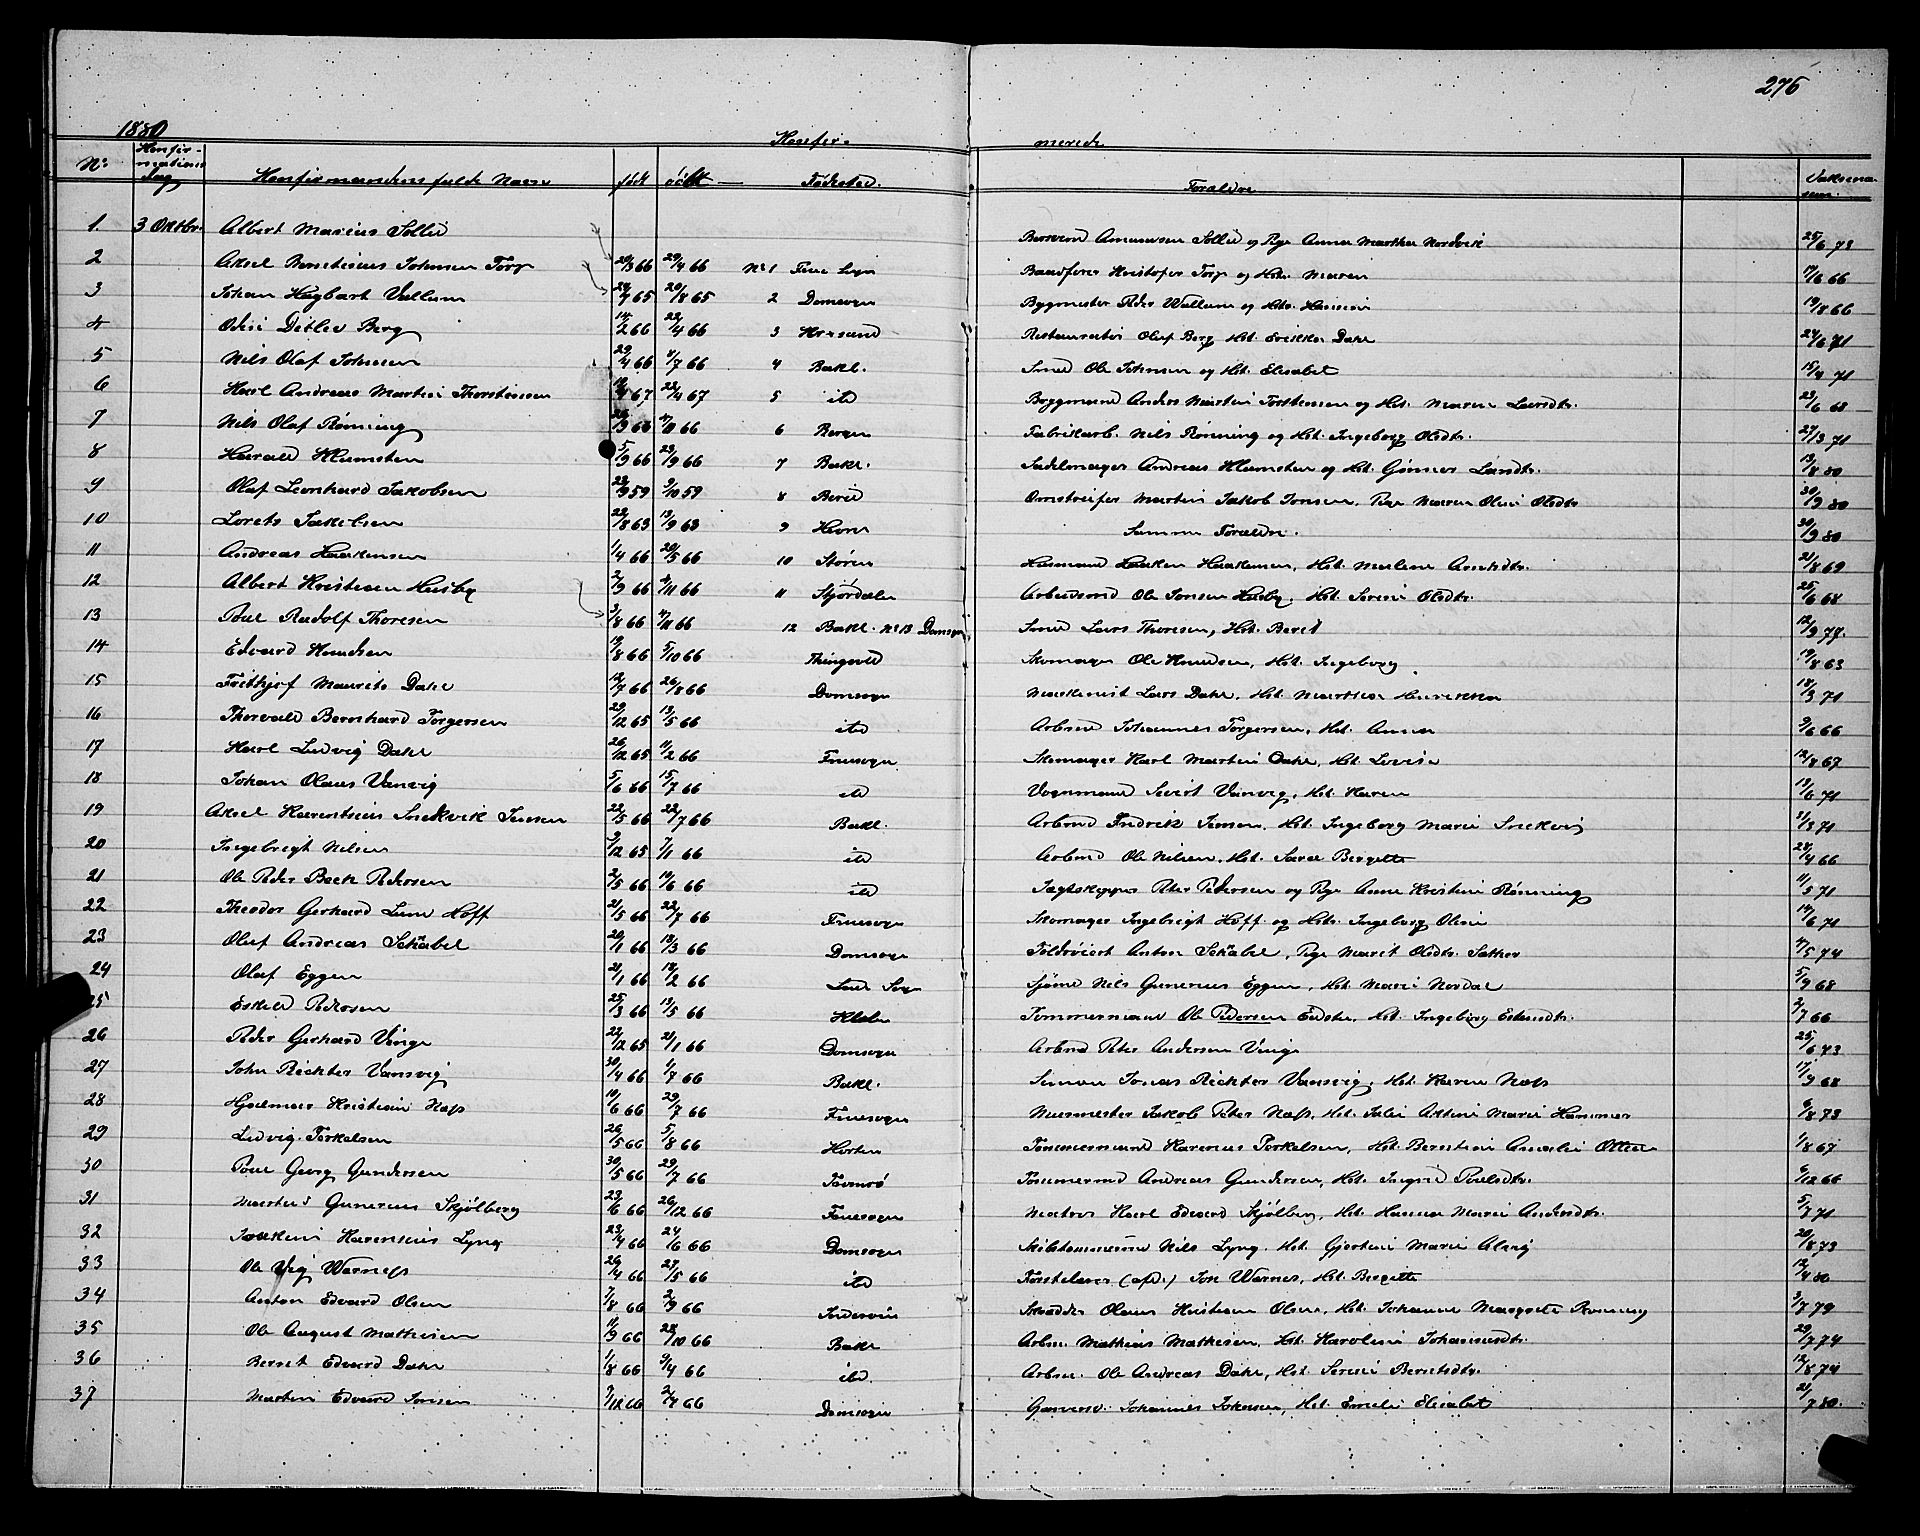 276
1880
Konfir-
merede
No
Konfir-
mations
dag
Konfirmandens fulde Navn
født
døbt
Fødested.
Forældre
Vaksina-
1. 3 Oktbr. Albert Marius Sollie Amundsen Sollie og Pige Anna Martha Nordvik 25/6 73
2 Aksel Johnsen Torp 29/4 66 No 1 Frue Sogn Kristofer Torp og Hst. Maren 66
3 Johan Hagbart Vullum 65 20/8 65 2 Domsogn Bygmester Peder Wullum og Hst. 19/8 66
4 Ditlev Berg 14/2 66 22/4 66 3 Restauratør Oluf Berg Hst. Erikka Dahl 24/6 71
5 Nils Olaf Johnsen 29/4 66 /7 66 4 Bakl. Smed Ole Johnsen og Hst. Elisabet 15/4 71
6 Karl Andreas Martin Thorstensen 67 22/4 67 5 ibd Byggmand Anders Martin Torstensen og Hst. Maren Larsdtr. 23/6 68
7 Nils Olaf Rønning 66 6 Bergen Fabrikarb. Nils Rønning og Hst. Ingeborg Olsdtr. 71
8 Harald Klumsten 5/9 66 23/9 66 7 Bakl. Sadelmager Andreas Klumsten og Hst. Gunner Larsdtr. 13/8 80
9 Olaf Leonhard Jakobsen 22/9 59 9/10 59 8 Martin Jakob Jonsen, Pige Maren Oline Olsdtr. 30/9 80
10 Lorets Jakobsen 22/8 63 13/9 63 9 Hevne Samme Forældre. 30/9 80
11 Andreas Haakensen 1/4 66 20/5 66 10 Støren Husmand Haaken Haakensen, Hst. Marlene Arntsdtr. 21/8 69
12 Albert Kristian Husby 2/9 66 /11 66 11 Stjørdalen Arbeidsmd Ole Jonsen Husby, Hst. Serine Olsdtr. 25/6 68
13 Poul Rudolf Thoresen 3/8 66 66 12 Bakl. No 13 Domsogn Smed Lars Thoresen, Hst. Beret 12/9 77.
14 Edvard Knudsen 19/8 66 5/10 66 Thingvold Skomager Ole Knudsen, Hst. Ingeborg 19/8 63
15 Frithjof Maurits Dahl 12/7 66 26/8 66 Domsogn Maskinist Lars Dahl, Hst. Martha Henrikka 18/3 71
16 Thorvald Bernhard Torgersen 29/12 65 13/5 66 ibd Arbmd Johannes Torgersen, Hst. Anna 9/6 66
17 Karl Ludvig Dahl 26/12 65 11/2 66 Fruesogn Skomager Karl Martin Dahl, Hst. Lovise 12/8 67
18 Johan Olaus Vanvig 5/6 66 15/7 66 ibd Vognmand Sivert Vanvig, Hst. Karen 13/6 71
19 Aksel Karentsius Snekvik Jensen 22/5 66 22/7 66 Bakl. Arbmd Fredrik Jensen, Hst. Ingeborg Marie Snekvig 71
20 Ingebrigt Nilsen 9/12 65 7/1 66 ibd Arbmd Ole Nilsen, Hst. Sara Bergitte 28/4 66
21 Ole Peder Beck Pedersen 2/5 66 10/6 66 ibd Jagtskipper Peter Pedersen og Pige Anne Kristine Rønning 11/5 71
22 Theodor Gerhard Lund Hoff 21/5 66 22/7 66 Fruesogn Skomager Ingebrigt Hoff og Hst. Ingeborg Oline 14/6 71
23 Oluf Andreas Schåbel 20/1 66 18/3 66 Domsogn Anton Schåbel, Pige Marit Olsdtr. 74
24 Olaf Eggen 21/1 66 18/2 66 Sjømd Nils Gunerius Eggen, Hst. Marie Nordal 5/9 68
25 Eskild Pedersen 25/3 66 13/5 66 Klæbu Tømmermand Ole Pedersen Hst. Ingeborg 2/7 66
26 Peder Gerhard Vinge 22/12 65 21/1 66 Domsogn Arbmd Peter Andersen Vinge 25/6 73
27 John Rickter Vansvig 30/4 66 1/7 66 Bakl. Jonas Rickter Vansvig, Hst. Karen Næss 17/9 68
28 Hjalmar Kristian Næss 10/6 66 29/7 66 Fruesogn Murmester Jakob Peter Næss, Hst. Julie Marie Hammer 6/8 73
29 Ludvig Torkelsen 26/5 66 5/8 66 Horten Tømmermand Karenus Torkelsen, Hst. Berntine Amalie 1/8 67
30 Poul Georg Gundersen 30/5 66 29/7 66 Tromsø Tømmermd Andreas Gundersen, Hst. Ingrid Poulsdtr. 6/12 66
31 Martin Gunerius Skjølberg 23/6 66 26/12 66 Fruesogn Matros Karl Edvard Skjølberg, Hst. Hanna Marie Andersdtr. 5/7 71
32 Joakim Karensius Lyng 23/4 66 24/6 66 Domsogn Skibstømmermd Nils Lyng, Hst. Gjertine Marie 20/8 73
33 Ole Vig Warness 26/4 66 27/5 66 ibd (afd.) Jon Warnes, Hst. Bergitte 12/4 80
34 Anton Edvard Olsen 7/8 66 2/9 66 Inderøen Skrædder Olaus Kristian Olsen, Hst. Johanne Margrete Rønning 3/7 79
35 Ole August Mathisen 11/9 66 28/10 66 Bakl Arbm. Mathias Mathisen, Hst. Karoline Johannesdtr. 29/7 74
36 Bernt Edvard Dahl 1/8 66 9/4 66 ibd. Arbm. Ole Andreas Dahl, Hst. Serine Berntsdtr. 12/8 74
37 Martin Edvard Jonsen 66 66 Domsogn Johannes Johnsen, Hst. Emelie Elisabet 21/7 80.